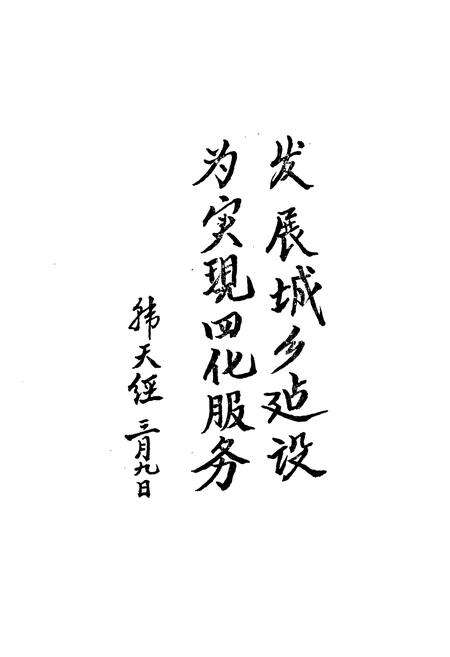 发展城乡建设
为实現四化服务
韩天經 三月九日